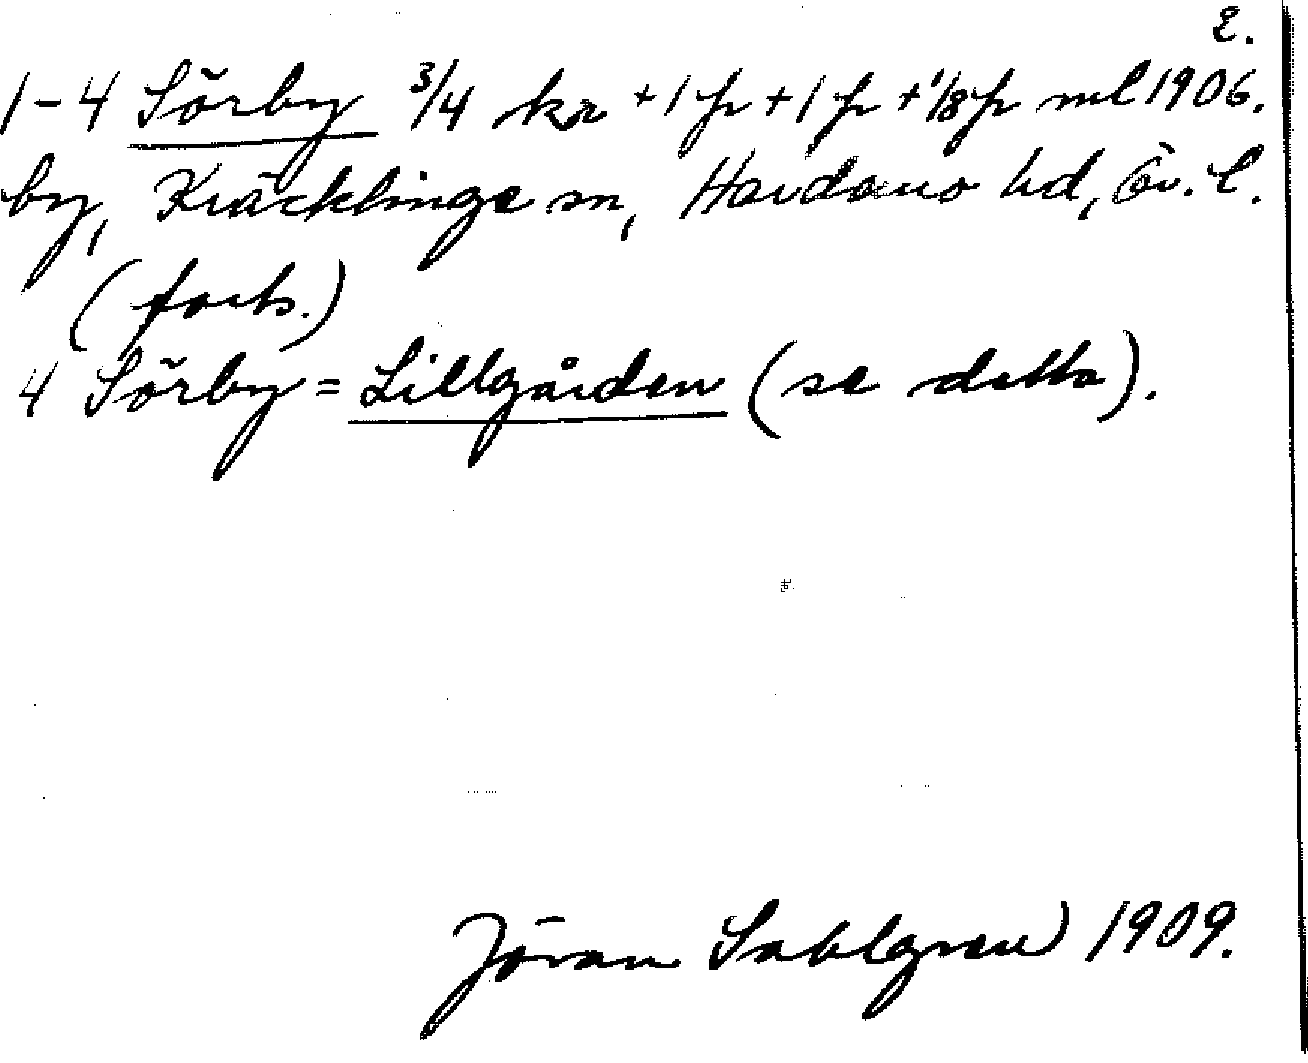 2.
1-4 Sörby 3/4 kr +1 fr +1 fr +1/8 fr ml 1906.
by, Kräcklinge sn, Hardemo hd, Ör. l.
(forts.)
4 Sörby = Lillgården (se detta).
Jöran Sahlgren 1909.